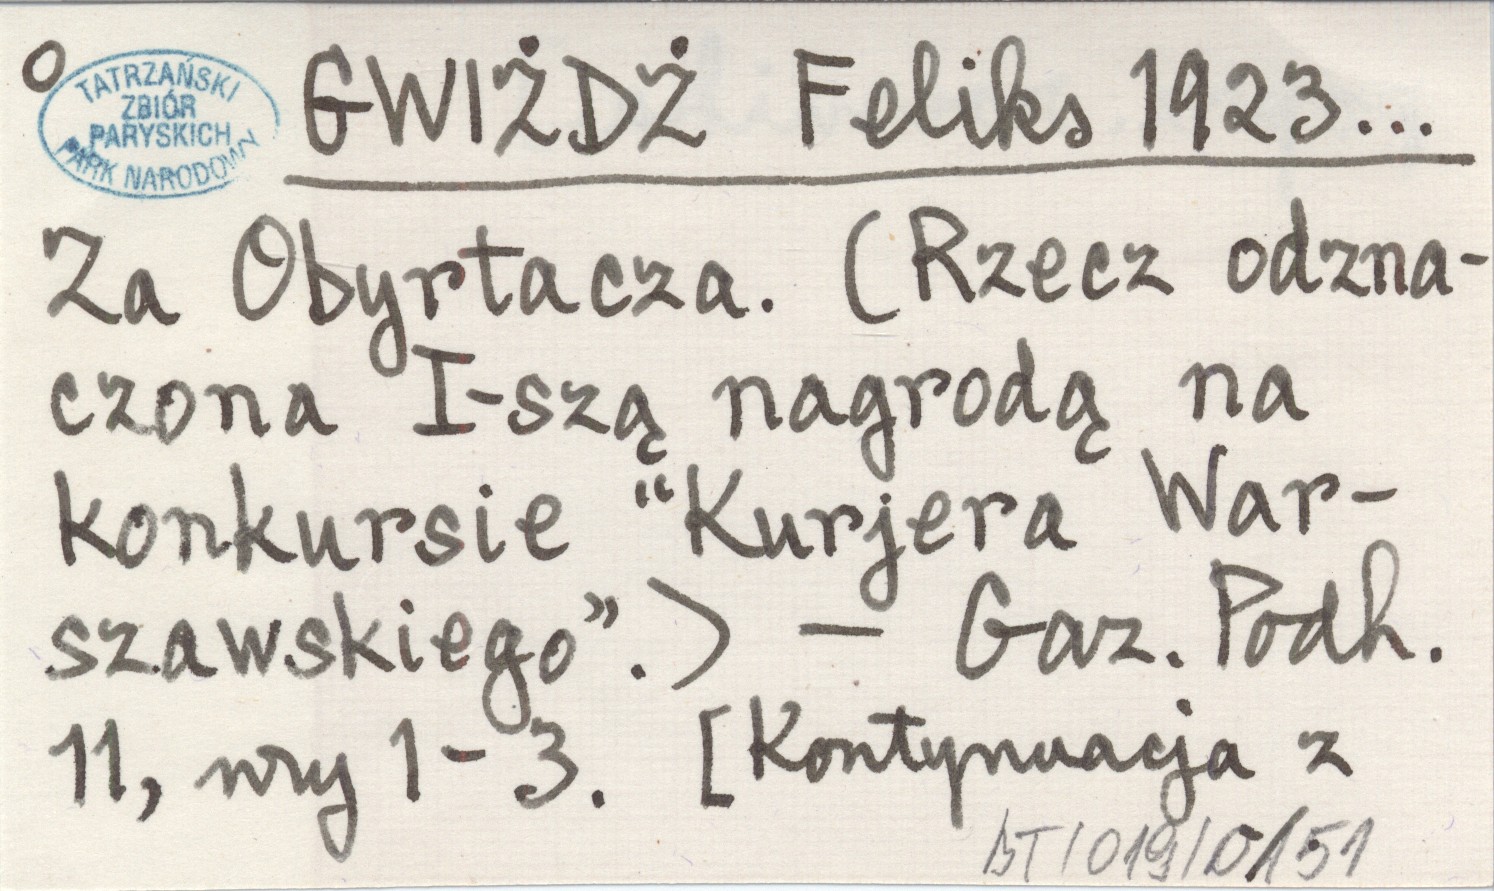 O
TATRZAŃSKI
ZBIÓR
PARYSKICH
PARK NARODOWY
GWIŻDŻ Feliks 1923...
Za Obyrtacza. (Rzecz odzna-
czona I-szą nagrodą na
konkursie “Kurjera War-
szawskiego”.) — Gaz. Podh.
11, nry 1-3. [Kontynuacja z
BT/019/D/151